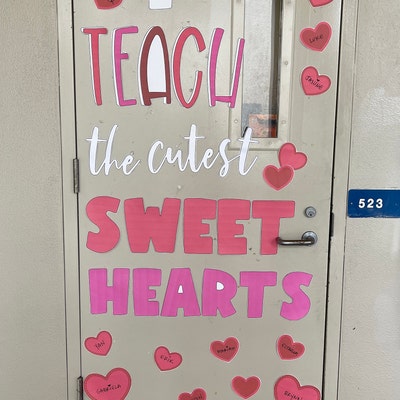 TEACH
the cutest
SWEET
HEARTS
523